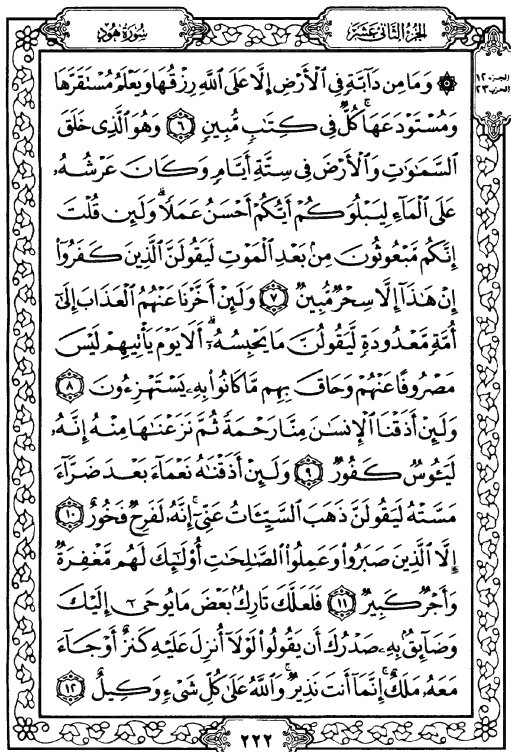 سُورَةُ هُود
الجُزءُ الثَّانِي عَشَر
الجزء ١٢
الحزب ٢٣
۞ وَمَا مِن دَآبَّةٍ فِي ٱلْأَرْضِ إِلَّا عَلَى ٱللَّهِ رِزْقُهَا وَيَعْلَمُ مُسْتَقَرَّهَا
وَمُسْتَوْدَعَهَا ۚ كُلٌّ فِي كِتَٰبٍ مُّبِينٍ ٦ وَهُوَ ٱلَّذِي خَلَقَ
ٱلسَّمَٰوَٰتِ وَٱلْأَرْضَ فِي سِتَّةِ أَيَّامٍ وَكَانَ عَرْشُهُۥ
عَلَى ٱلْمَآءِ لِيَبْلُوَكُمْ أَيُّكُمْ أَحْسَنُ عَمَلًا ۗ وَلَئِن قُلْتَ
إِنَّكُم مَّبْعُوثُونَ مِنۢ بَعْدِ ٱلْمَوْتِ لَيَقُولَنَّ ٱلَّذِينَ كَفَرُوٓا۟
إِنْ هَٰذَآ إِلَّا سِحْرٌ مُّبِينٌ ٧ وَلَئِنْ أَخَّرْنَا عَنْهُمُ ٱلْعَذَابَ إِلَىٰٓ
أُمَّةٍ مَّعْدُودَةٍ لَّيَقُولُنَّ مَا يَحْبِسُهُۥٓ ۗ أَلَا يَوْمَ يَأْتِيهِمْ لَيْسَ
مَصْرُوفًا عَنْهُمْ وَحَاقَ بِهِم مَّا كَانُوا۟ بِهِۦ يَسْتَهْزِءُونَ ٨
وَلَئِنْ أَذَقْنَا ٱلْإِنسَٰنَ مِنَّا رَحْمَةً ثُمَّ نَزَعْنَٰهَا مِنْهُ إِنَّهُۥ
لَيَـُٔوسٌ كَفُورٌ ٩ وَلَئِنْ أَذَقْنَٰهُ نَعْمَآءَ بَعْدَ ضَرَّآءَ
مَسَّتْهُ لَيَقُولَنَّ ذَهَبَ ٱلسَّيِّـَٔاتُ عَنِّيٓ ۚ إِنَّهُۥ لَفَرِحٌ فَخُورٌ ١٠
إِلَّا ٱلَّذِينَ صَبَرُوا۟ وَعَمِلُوا۟ ٱلصَّٰلِحَٰتِ أُو۟لَٰٓئِكَ لَهُم مَّغْفِرَةٌ
وَأَجْرٌ كَبِيرٌ ١١ فَلَعَلَّكَ تَارِكٌۢ بَعْضَ مَا يُوحَىٰٓ إِلَيْكَ
وَضَآئِقٌۢ بِهِۦ صَدْرُكَ أَن يَقُولُوا۟ لَوْلَآ أُنزِلَ عَلَيْهِ كَنزٌ أَوْ جَآءَ
مَعَهُۥ مَلَكٌ ۚ إِنَّمَآ أَنتَ نَذِيرٌ ۚ وَٱللَّهُ عَلَىٰ كُلِّ شَيْءٍ وَكِيلٌ ١٢
٢٢٢